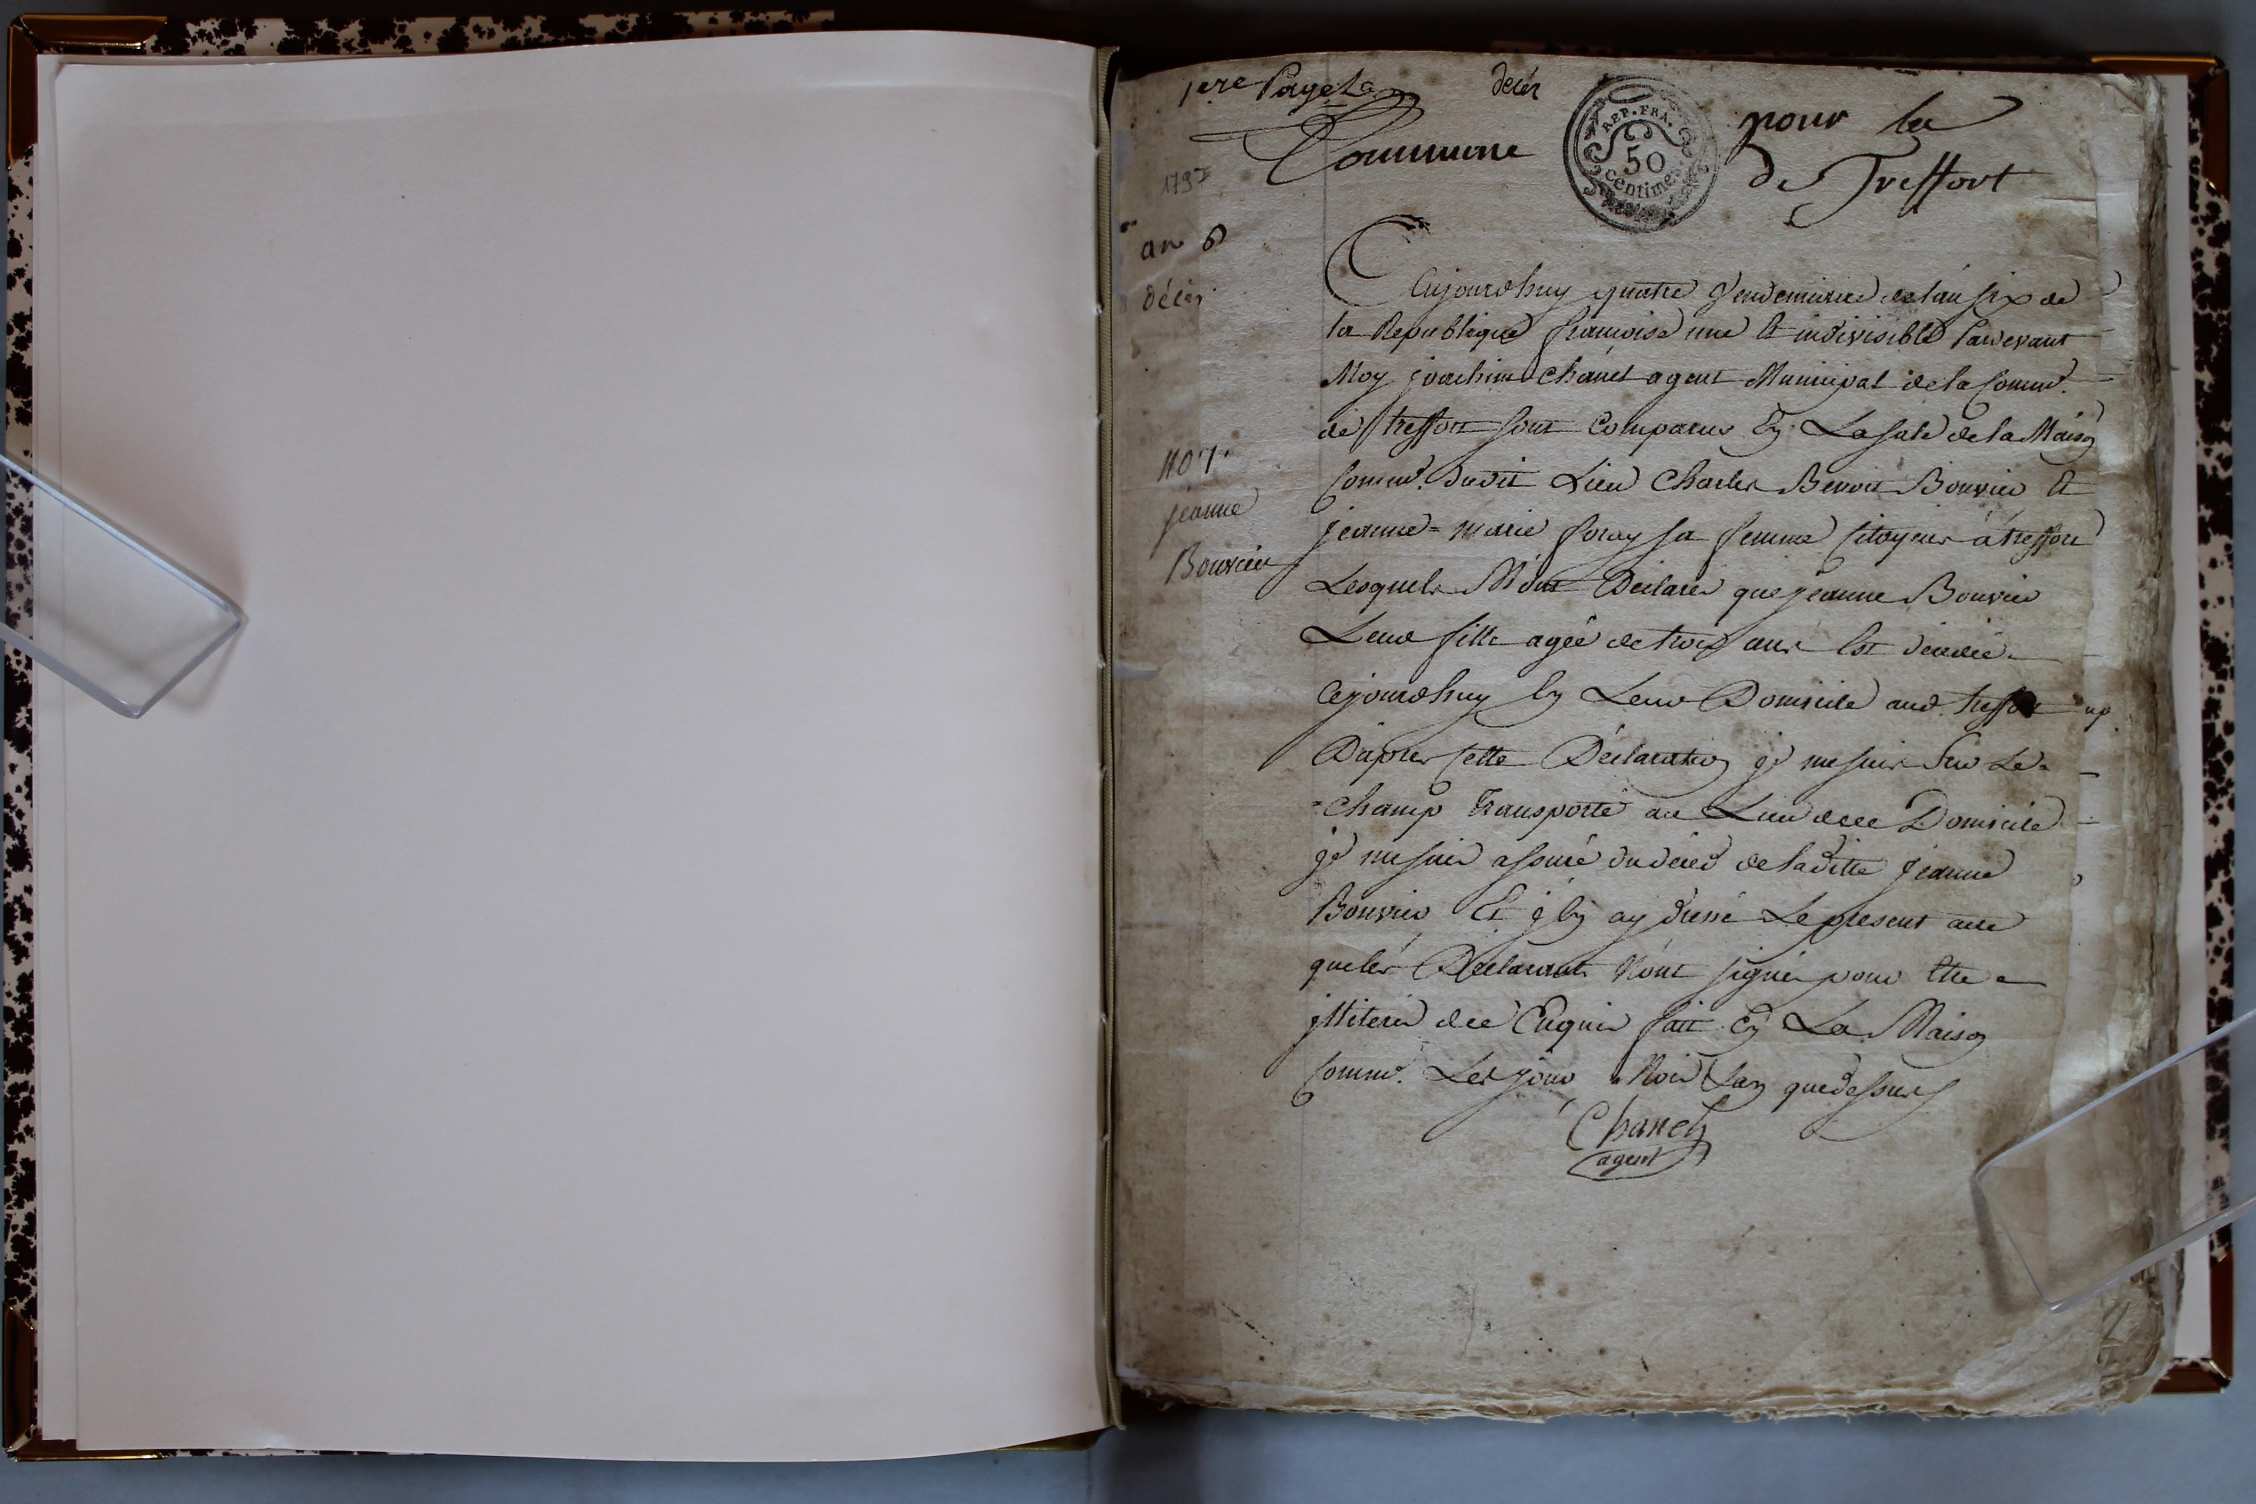 1ere Page La decès pour la
Commune de Treffort
REP. FRA.
50
centimes
1797
an 6
décès
Cejourdhuy quatre Vendemiaire de lan six de
la Republique francoise une et indivisible Pardevant
Moy joachim Chanel agent Municipal de la Comm.e
de treffort sont Comparus En La sale de la Maison
Comm.e dudit Lieu Charles Benoit Bouvier et
jeanne = marie foray sa femme Citoyens à treffort
Lesquels M'ont Déclarés que jeanne Bouvier
Leur fille agée de trois ans Est décedée
Cejourdhuy En Leur Domicile aud. treffort
Daprès Cette Déclaration je me suis Sur Le =
= Champ Transporté au Lieu de ce Domicile
je me suis assuré du décès de laditte jeanne
Bouvier Et j'En ay dressé Le present acte
que les Declarants N'ont signés pour être
jlliterés de ce Enquis fait En La Maison
Comm.e Les jour Mois Et an que dessus
Chanel
agent
No 1.
jeanne
Bouvier